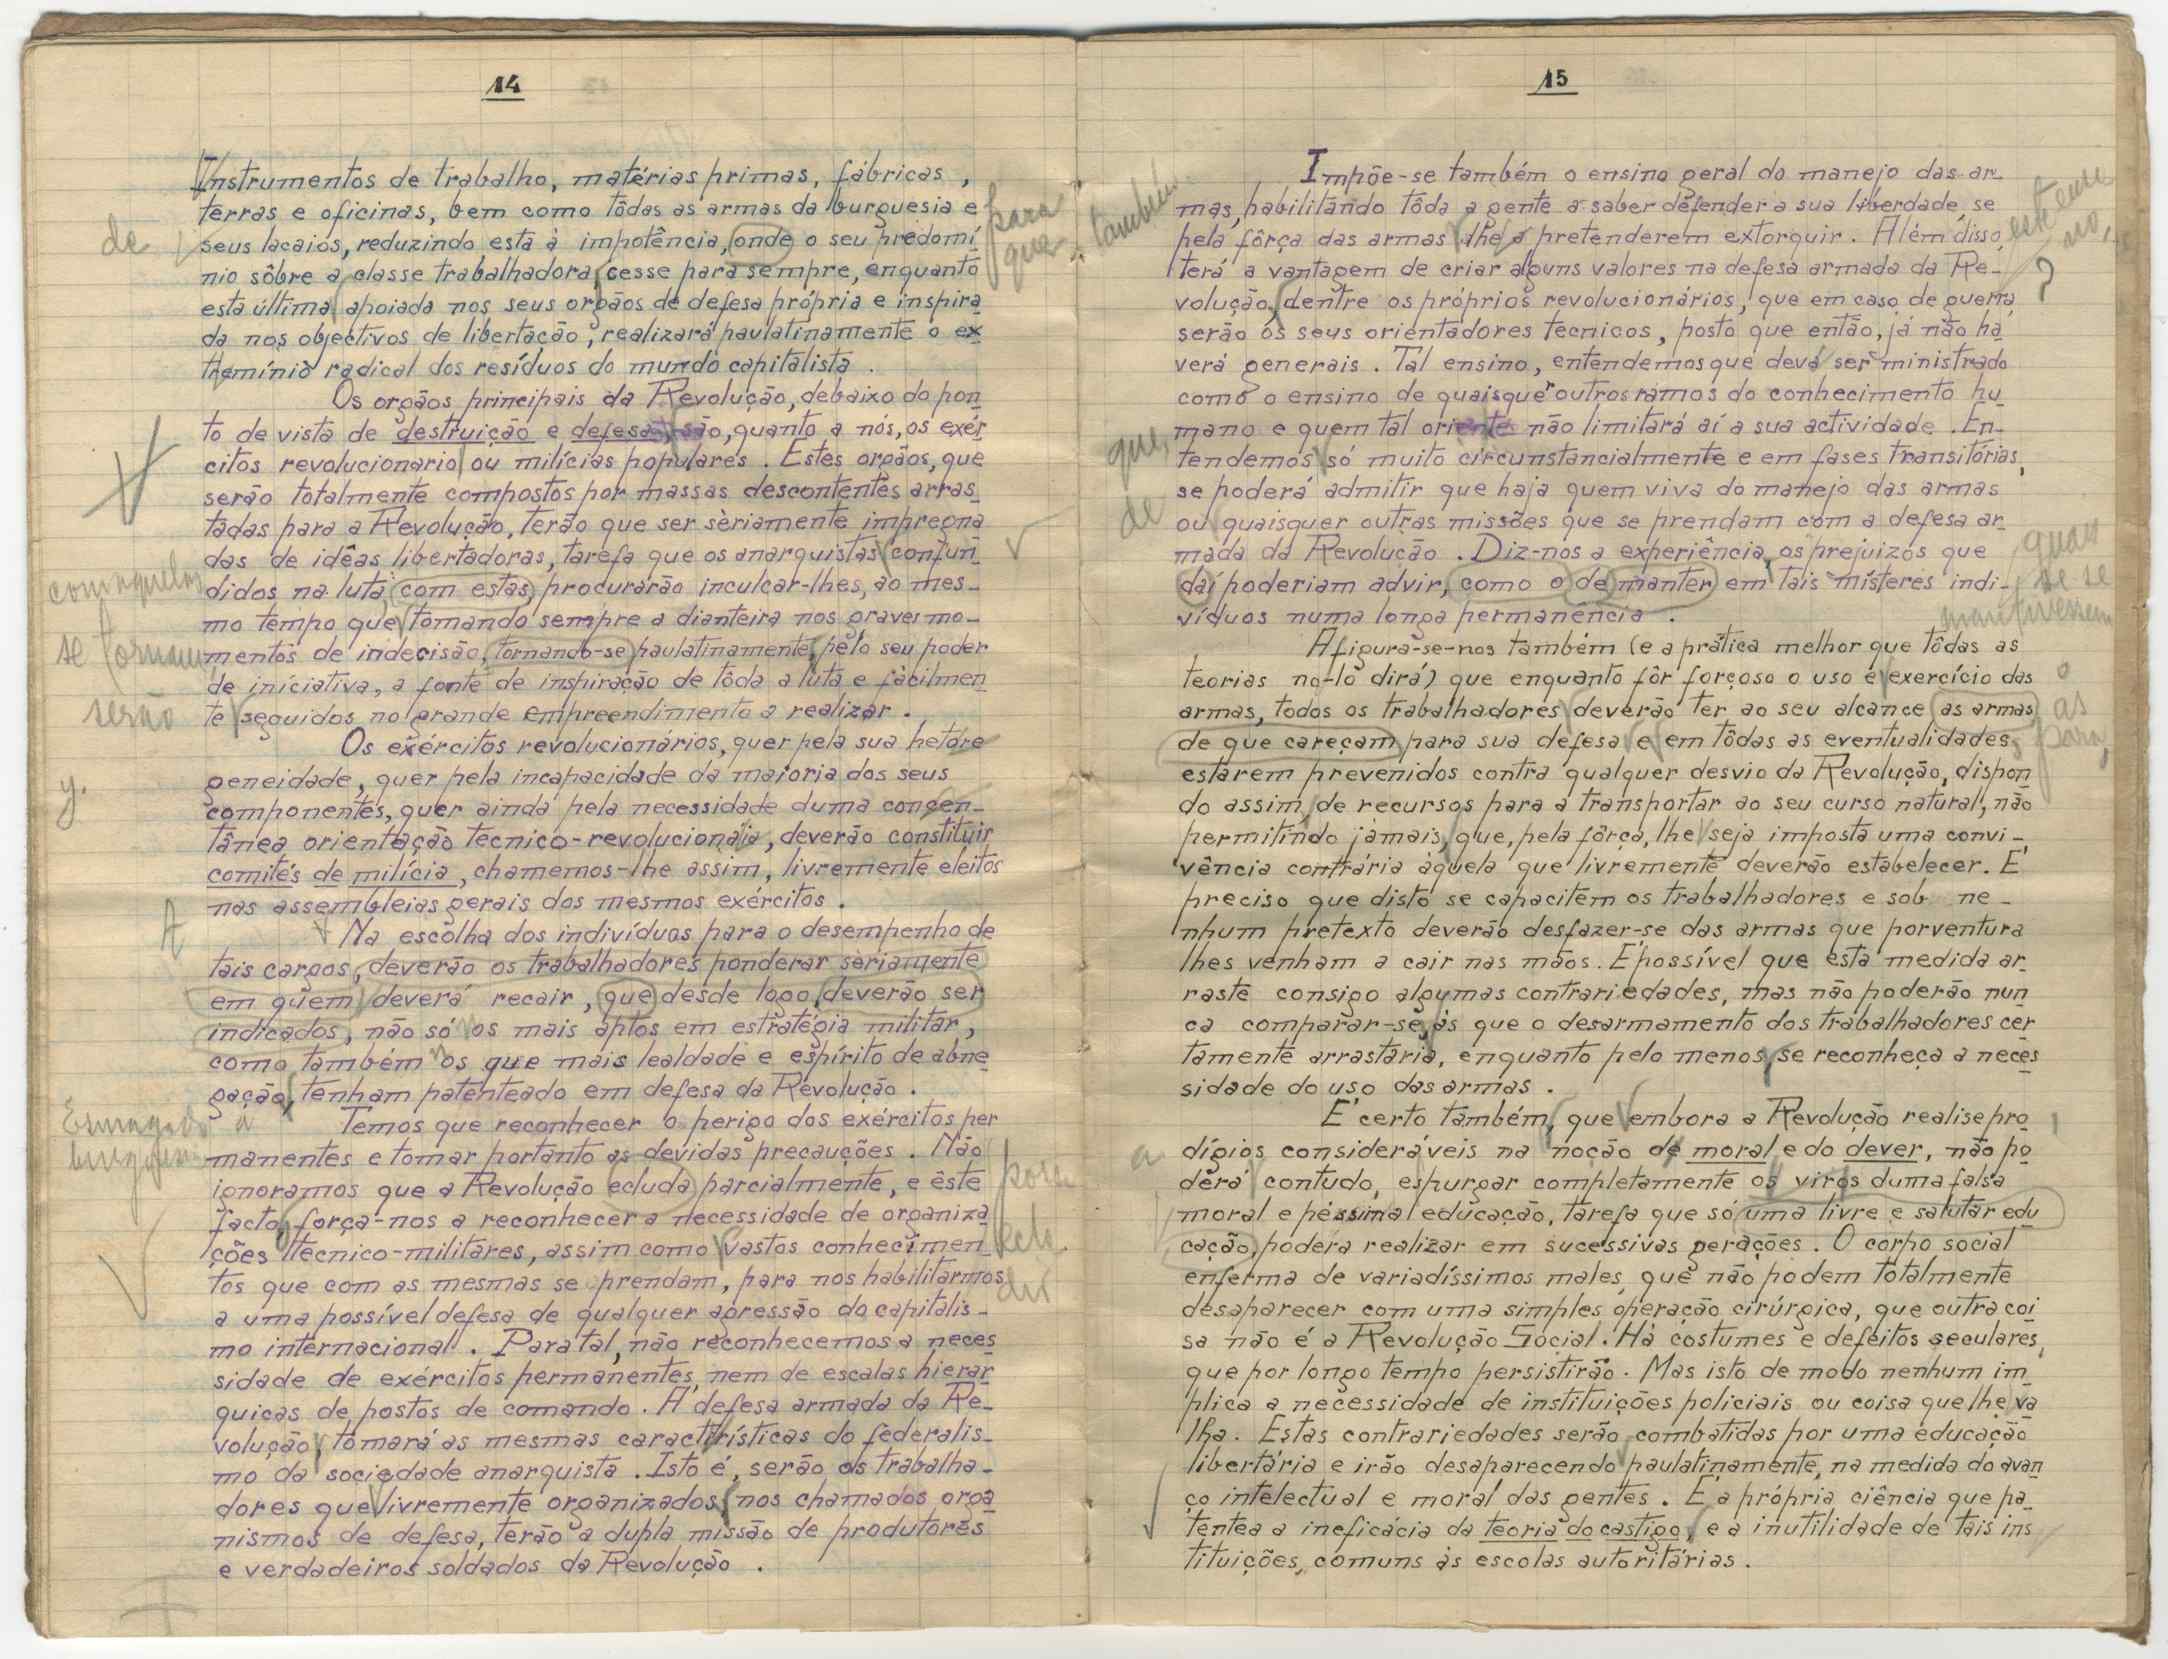 14
Instrumentos de trabalho, matérias primas, fábricas,
terras e oficinas, bem como tôdas as armas da burguesia e
de
seus lacaios, reduzindo esta à impotência, onde o seu predomí
para
que
nio sôbre a classe trabalhadora, cesse para sempre, enquanto
esta última, apoiada nos seus orgãos de defesa própria e inspira
da nos objectivos de libertação, realizará paulatinamente o ex
themínio radical dos resíduos do mundo capitalista.
Os orgãos principais da Revolução, debaixo do pon
to de vista de destruição e defesa, são, quanto a nós, os exér
citos revolucionario ou milícias populares. Estes orgãos, que
serão totalmente compostos por massas descontentes arras
tadas para a Revolução, terão que ser sèriamente impregna
das de idêas libertadoras, tarefa que os anarquistas confun
com aquelas
didos na luta, com estas, procurarão inculcar-lhes, ao mes-
mo tempo que tomando sempre a dianteira nos graves mo-
se tornam
mentos de indecisão, tornando-se paulatinamente, pelo seu poder
de iniciativa, a fonte de inspiração de tôda a luta e fàcilmen
serão
te seguidos no grande empreendimento a realizar.
Os exércitos revolucionários, quer pela sua hetore
y.
geneidade, quer pela incapacidade da maioria dos seus
componentes, quer ainda pela necessidade duma concen-
tânea orientação tecnico-revolucionaia, deverão constituir
comités de milícia, chamemos-lhe assim, livremente eleitos
nas assembleias gerais dos mesmos exércitos.
Na escolha dos indivíduos para o desempenho de
tais cargos, deverão os trabalhadores ponderar sèriamente
em quem deverá recair, que desde logo deverão ser
indicados, não só os mais aptos em estratégia militar,
como também os que mais lealdade e espírito de abne
gação, tenham patenteado em defesa da Revolução.
Esmagada a
burguesia
Temos que reconhecer o perigo dos exércitos per
manentes e tomar portanto as devidas precauções. Não
ignoramos que a Revolução ecluda parcialmente, e êste
facto, força-nos a reconhecer a necessidade de organiza
ções tecnico-militares, assim como vastos conhecimen
tos que com as mesmas se prendam, para nos habilitarmos
a uma possível defesa de qualquer agressão do capitalis-
mo internacional. Para tal, não reconhecemos a neces
sidade de exércitos permanentes, nem de escalas hierar
quicas de postos de comando. A defesa armada da Re-
volução, tomará as mesmas caractirísticas do federalis-
mo da sociedade anarquista. Isto é, serão os trabalha-
dores que livremente organizados, nos chamados orga
nismos de defesa, terão a dupla missão de produtores
e verdadeiros soldados da Revolução.
15
Impõe-se também o ensino geral do manejo das ar-
também
mas, habilitando tôda a gente a saber defender a sua liberdade, se
pela fôrça das armas lhe a pretenderem extorquir. Além disso,
este ensi
no,
?
terá a vantagem de criar alguns valores na defesa armada da Re-
volução, dentre os próprios revolucionários, que em caso de guerra,
serão os seus orientadores tecnicos, posto que então, já não ha
verá generais. Tal ensino, entendemos que deva ser ministrado
como o ensino de quaisquer outros ramos do conhecimento hu
mano e quem tal oriente não limitará aí a sua actividade. En-
que,
tendemos só muito circunstancialmente e em fases transitórias,
se poderá admitir que haja quem viva do manejo das armas
de
ou quaisquer outras missões que se prendam com a defesa ar
mada da Revolução. Diz-nos a experiência, os prejuizos que
daí poderiam advir, como o de manter em tais místeres indi-
quan
se se
mantivessem
víduos numa longa permanência.
Afigura-se-nos também (e a prática melhor que tôdas as
teorias no-lo dirá) que enquanto fôr forçoso o uso e exercício das
o
armas, todos os trabalhadores deverão ter ao seu alcance as armas
as
de que careçam para sua defesa e em tôdas as eventualidades,
para,
estarem prevenidos contra qualquer desvio da Revolução, dispon
do assim, de recursos para a transportar ao seu curso natural, não
permitindo jàmais, que, pela fôrça, lhe seja imposta uma convi-
vência contrária àquela que livremente deverão estabelecer. E'
preciso que disto se capacitem os trabalhadores e sob ne-
nhum pretexto deverão desfazer-se das armas que porventura
lhes venham a cair nas mãos. E'possível que esta medida ar-
raste consigo algumas contrariedades, mas não poderão nun
ca comparar-se, às que o desarmamento dos trabalhadores cer
tamente arrastaria, enquanto pelo menos, se reconheça a neces
sidade do uso das armas.
E'certo também, que embora a Revolução realise pro
a
dígios consideráveis na noção de moral e do dever, não po
derá contudo, espurgar completamente os viros duma falsa
moral e péssima educação, tarefa que só uma livre e salutar edu
cação, poderá realizar em sucessivas gerações. O corpo social
enferma de variadíssimos males, que não podem totalmente
desaparecer com uma simples operação cirúrgica, que outra coi
sa não é a Revolução Social. Há costumes e defeitos seculares,
que por longo tempo persistirão. Mas isto de modo nenhum im
plica a necessidade de instituições policiais ou coisa que lhe va
lha. Estas contrariedades serão combatidas por uma educação
libertária e irão desaparecendo paulatinamente, na medida do avan
ço intelectual e moral das gentes. E' a própria ciência que pa-
tentea a ineficácia da teoria do castigo, e a inutilidade de tais ins
tituições, comuns às escolas autoritárias.